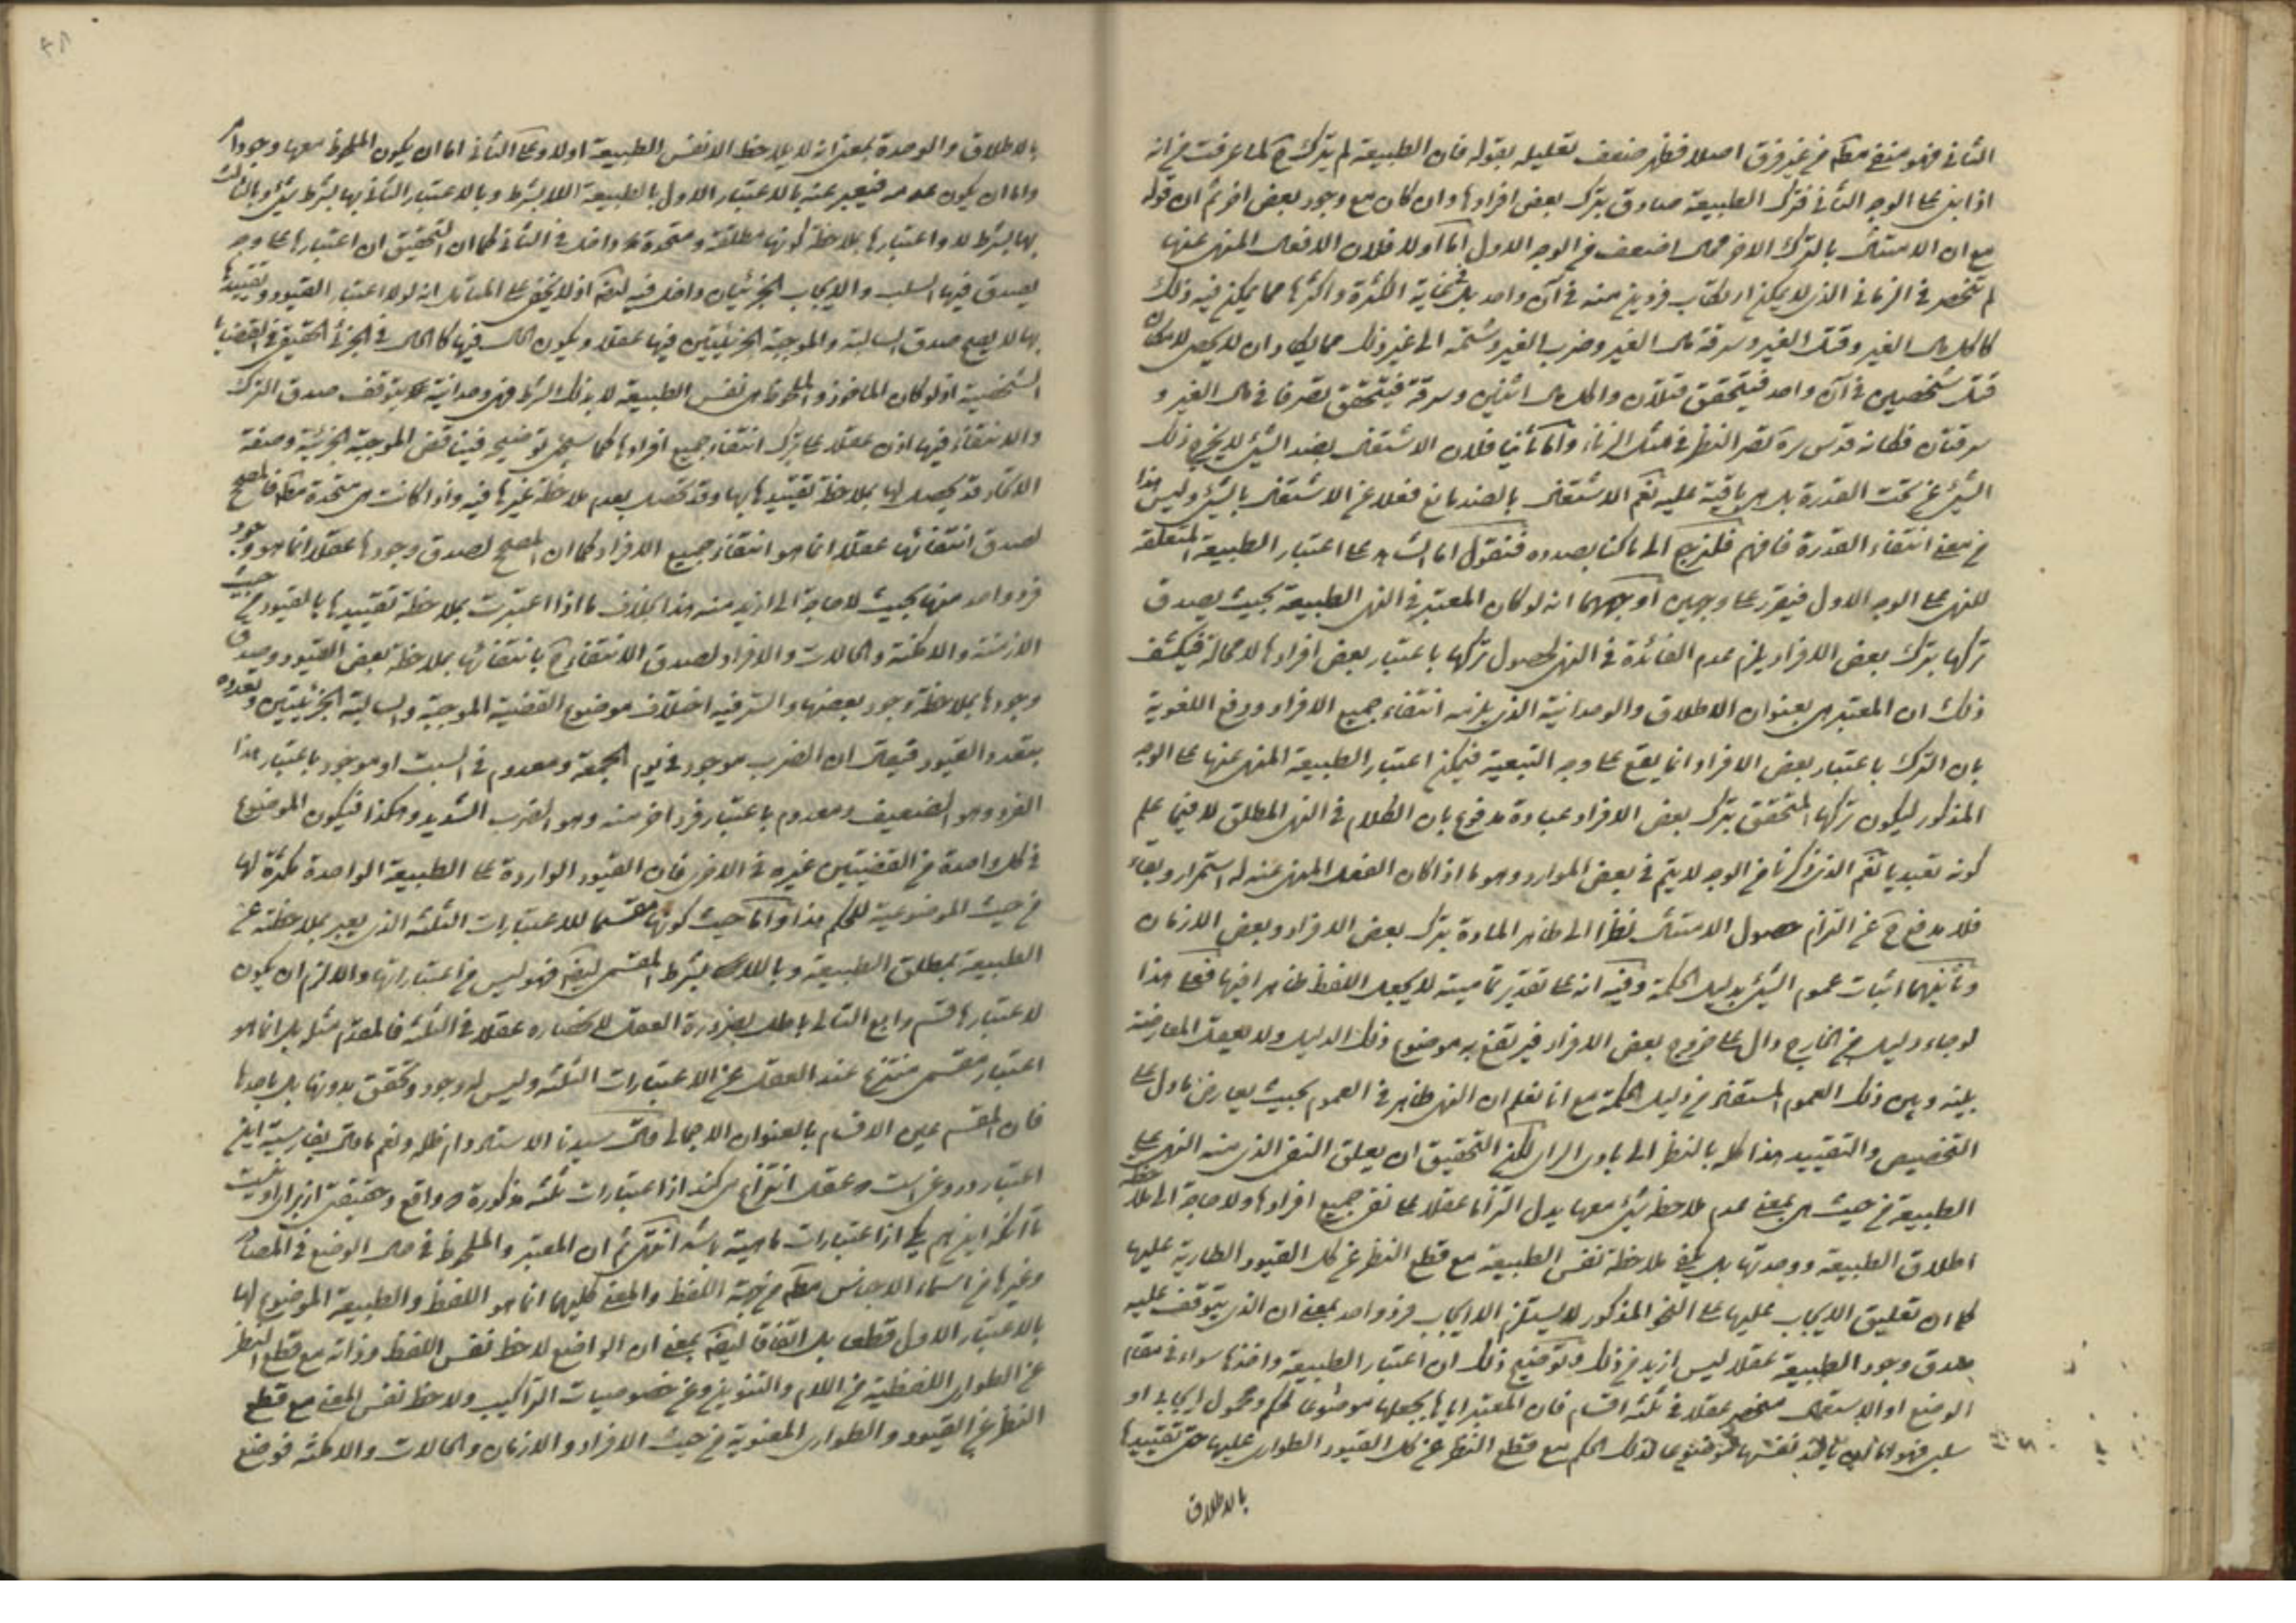 الثاني فهو منفي مط من غير فرق اصلا فظهر ضعف تعليله بقوله فان الطبيعة لم يترك ح لما عرفت من انه
اذا بنى على الوجه الثاني فترك الطبيعة صادق بترك بعض افرادها وان كان مع وجود بعض اخر ثم ان قوله
مع ان الامتثال بالترك الاخر محال اضعف من الوجه الاول اما اولا فلان الافعال المنهي عنها
لم تنحصر في الزنا الذي لا يمكن ارتكاب فردين منه في آن واحد بل في غاية الكثرة واكثرها مما يمكن فيه ذلك
كاكل مال الغير وقتل الغير وسرقة مال الغير وضرب الغير وشتمه الى غير ذلك مما يكاد ان لا يحصى لامكان
قتل شخصين في آن واحد فيتحقق قتلان واكل مال اثنين وسرقته فيتحقق تصرفا في مال الغير و
سرقتان فكانه قدس سره قصر النظر في مثل الزنا واما ثانيا فلان الاشتغال بضد الشيء لا يخرج ذلك
الشيء عن تحت القدرة بل هي باقية عليه نعم الاشتغال بالضد مانع فعلا عن الاشتغال بالشيء وليس هذا
من معنى انتفاء القدرة فافهم فلنرجع الى ما كنا بصدده فنقول اما الشاهد على اعتبار الطبيعة المتعلقة
للنهي على الوجه الاول فيقرر على وجهين أوجههما انه لو كان المعتبر في النهي الطبيعة بحيث يصدق
تركها بترك بعض الافراد يلزم عدم الفائدة في النهي لحصول تركها باعتبار بعض افرادها لا محالة فيكشف
ذلك ان المعتبر هي بعنوان الاطلاق والوحدانية الذي يلزمه انتفاء جميع الافراد ودفع اللغوية
بان الترك باعتبار بعض الافراد انما يقع على وجه التبعية فيمكن اعتبار الطبيعة المنهي عنها على الوجه
المذكور ليكون تركها المتحقق بترك بعض الافراد عبادة مدفوع بان الكلام في النهي المطلق لا فيما علم
كونه تعبديا نعم الذي ذكرنا من الوجه لا يتم في بعض الموارد وهو ما اذا كان الفعل المنهي عنه له استمرار وبقاء
فلا مدفع ح عن التزام حصول الامتثال نظرا الى ظاهر المادة بترك بعض الافراد وبعض الازمان
وثانيهما اثبات عموم الشيء بدليل الحكمة وفيه انه على تقدير تماميته لا يجعل اللفظ ظاهرا فيها فعلى هذا
لو جاء دليل من الخارج دال على خروج بعض الافراد فيرتفع به موضوع ذلك الدليل ولا يعقل المعارضة
بينه وبين ذلك العموم المستفاد من دليل الحكمة مع انا نعلم ان النهي ظاهر في العموم بحيث يعارض ما دل على
التخصيص والتقييد هذا كله بالنظر الى بادي الراى لكن التحقيق ان يعلق النفي الذي منه النهي على
الطبيعة من حيث هي بمعنى عدم ملاحظة شيء معها يدل التزاما عقلا على نفي جميع افرادها ولا حاجة الى ملاحظة
اطلاق الطبيعة ووحدتها بل يكفي ملاحظة نفس الطبيعة مع قطع النظر عن كل القيود الطارية عليها
كما ان تعليق الايجاب عليها على النحو المذكور لا يستلزم الا ايجاب فرد واحد بمعنى ان الذي يتوقف عليه
صدق وجود الطبيعة عقلا ليس ازيد من ذلك وتوضيح ذلك ان اعتبار الطبيعة واخذها سواء في مقام
الوضع او الاستعمال منحصر عقلا في ثلثة اقسام فان المعتبر اياها يجعلها موضوعا لحكم ومحمول ايجابي او
سلبي فهو اما ان ياخذ نفسها موضوعا لذلك الحكم مع قطع النظر عن كل القيود الطواري عليها حتى تقييدها
بالاطلاق
بالاطلاق والوحدة بمعنى انه لا يلاحظ الا نفس الطبيعة اولا وعلى الثاني اما ان يكون الملحوظ معها وجوديا
واما ان يكون عدميا فيعبر عنه بالاعتبار الاول بالطبيعة اللابشرط وبالاعتبار الثاني بها بشرط شيء وبالثالث
بها بشرط لا واعتبارها بملاحظة كونها مطلقة ومتحدة داخل في الثاني كما ان التحقيق ان اعتبارها على وجه
يصدق فيها السلب والايجاب الجزئيان داخل فيه ايضا اذ لا يخفى على المتامل انه لولا اعتبار القيود وتقييدها
بها لا يصح صدق السالبة والموجبة الجزئيتين فيها عقلا ويكون الحال فيها كالحال في الجزئي الحقيقي في القضايا
الشخصية اذ لو كان الماخوذ والملحوظ هي نفس الطبيعة لا بذلك الشرط فهي وحدانية يتوقف صدق الترك
والانتفاء فيها اذن عقلا على ترك انتفاء جميع افرادها كما سيجئ توضيحه فيناقض الموجبة الجزئية وصفة
الاتحاد قد يحصل لها بملاحظة تقييدها بها وقد تحصل بعدم ملاحظة غيرها فيه واذا كانت هي متحدة مط فالمصحح
لصدق انتفائها عقلا انما هو انتفاء جميع الافراد كما ان المصحح لصدق وجودها عقلا انما هو وجود
فرد واحد منها بحيث لا حاجة الى ازيد منه هذا بخلاف ما اذا اعتبرت بملاحظة تقييدها بالقيود من حيث
الازمنة والامكنة والحالات والافراد لصدق الانتفاء ح بانتفائها بملاحظة بعض القيود وصدق
وجودها بملاحظة وجود بعضها والسر فيه اختلاف موضوع القضية الموجبة والسالبة الجزئيتين وتعدده
بتعدد القيود فيقال ان الضرب موجود في يوم الجمعة ومعدوم في السبت او موجود باعتبار هذا
الفرد وهو الضعيف ومعدوم باعتبار فرد اخر منه وهو الضرب الشديد وهكذا فيكون الموضوع
في كل واحدة من القضيتين غيره في الاخرى فان القيود الواردة على الطبيعة الواحدة مكثرة لها
من حيث الموضوعية للحكم هذا واما حيث كونها مقسما للاعتبارات الثلثة الذي يعبر بملاحظته عن
الطبيعة بمطلق الطبيعة وباللابشرط المقسمي ايضا فهو ليس من اعتباراتها والا لزم ان يكون
لاعتبارها قسم رابع التالي باطل بضرورة العقل لانحصاره عقلا في الثلثة فالمقدم مثله بل انما هو
اعتبار مقسمي منتزع عند العقل عن الاعتبارات الثلثة وليس له وجود وتحقق بدونها بل باحدها
فان المقسم عين الاقسام بالعنوان الاجمالي قال سيدنا الاستاد دام ظله ونعم ما قال بفارسية اين
اعتبار دروغى است عقل انتزاع مى كند از اعتبارات ثلثه مذكوره واقع وحقيقتى از براى او نيست
تا آنكه اين هم يكى از اعتبارات ماهية باشد انتهى ثم ان المعتبر والملحوظ في حال الوضع في المصادر
وغيرها من اسماء الاجناس مط من جهة اللفظ والمعنى كليهما انما هو اللفظ والطبيعة الموضوع لها
بالاعتبار الاول قطعا بل اتفاقا ايضا بمعنى ان الواضع لاحظ نفس اللفظ وذاته مع قطع النظر
عن الطواري اللفظية من اللام والتنوين وعن خصوصيات التراكيب ولاحظ نفس المعنى مع قطع
النظر عن القيود والطواري المعنوية من حيث الافراد والازمان والحالات والامكنة فوضع